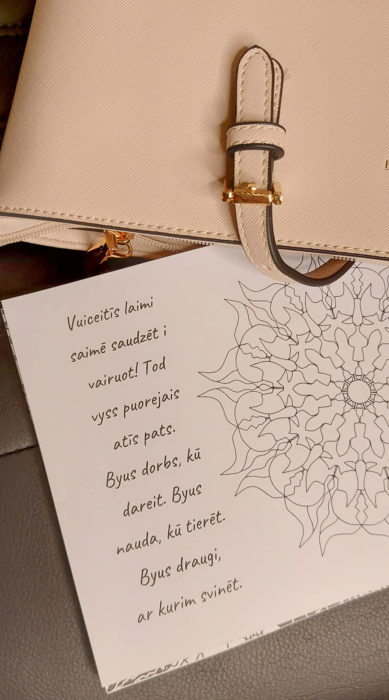 Vuiceitīs laimi
saimē saudzēt i
vairuot! Tod
vyss puorejais
atīs pats.
Byus dorbs, kū
dareit. Byus
nauda, kū tierēt.
Byus draugi,
ar kurim svinēt.